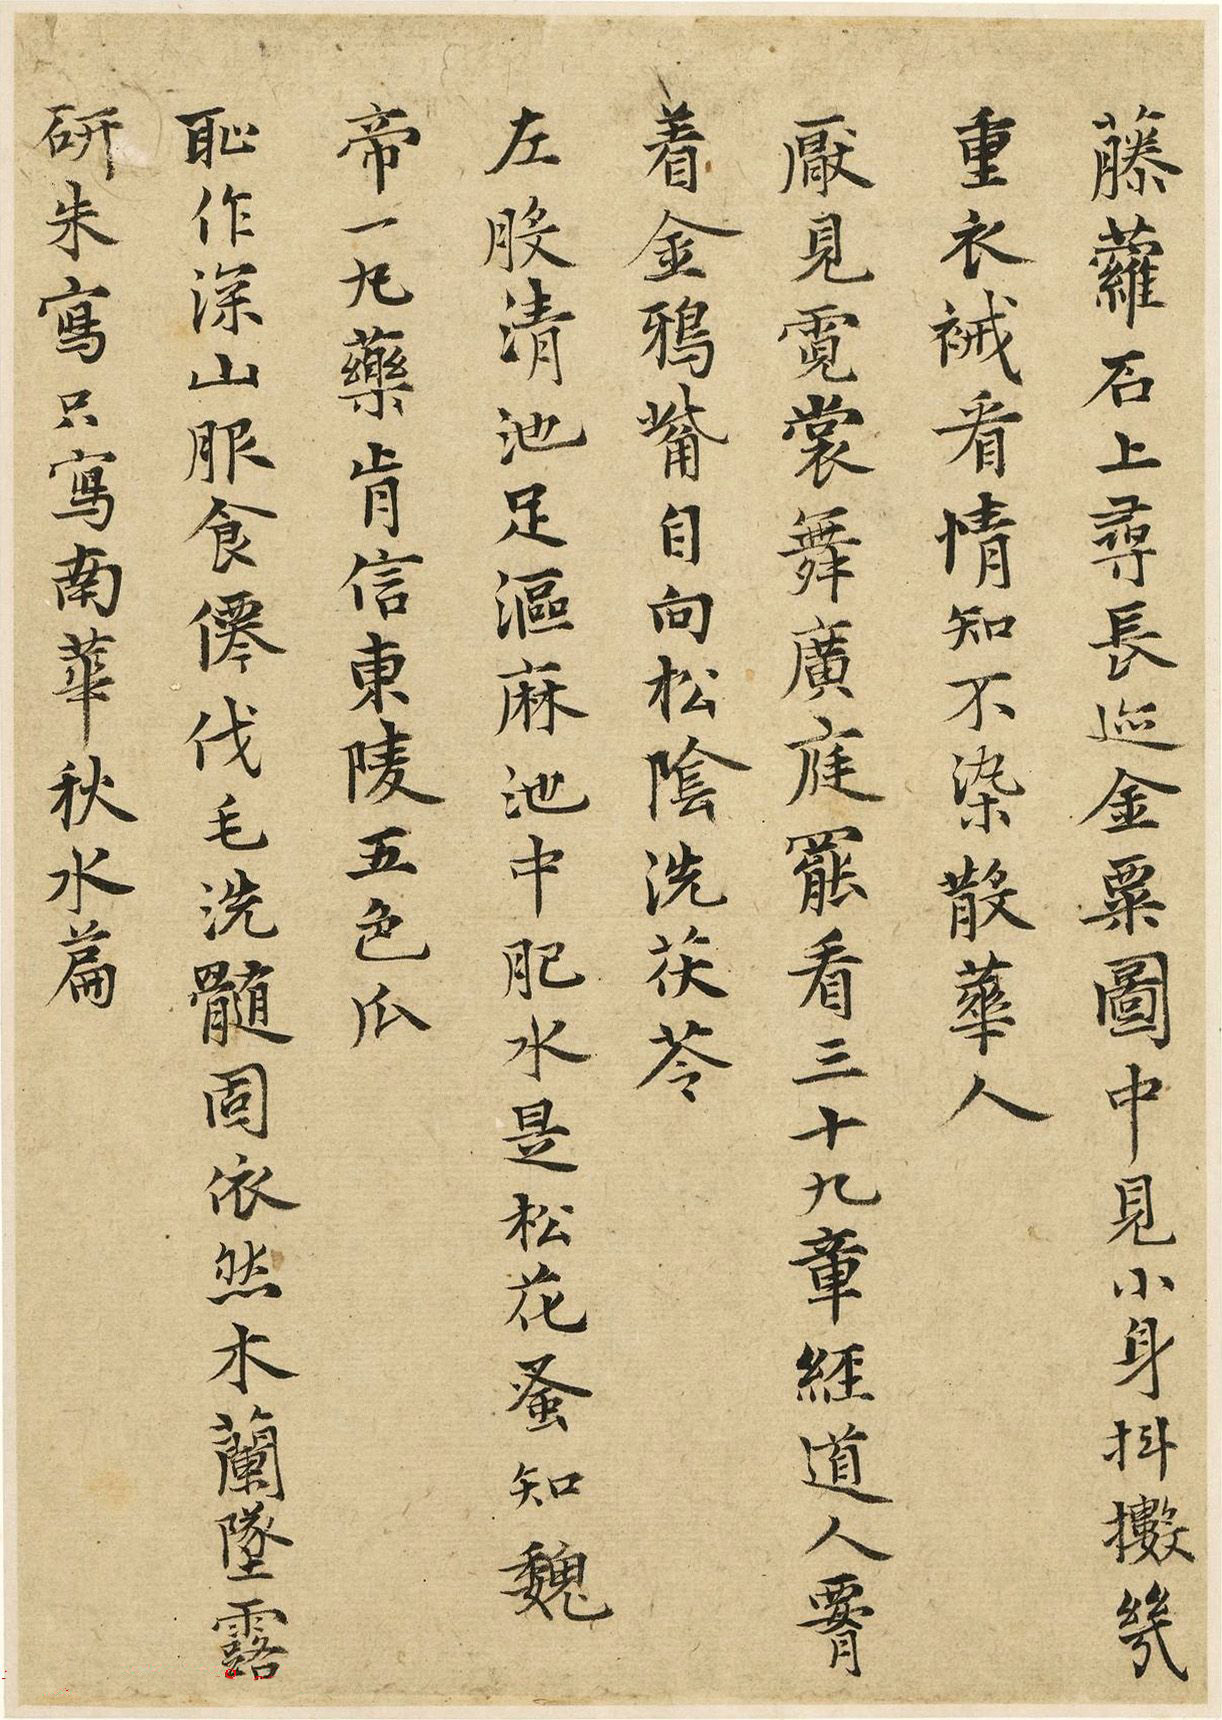 藤蘿石上尋長巡金粟圖中見小身抖擻幾
重衣裓看情知不染散華人
厭見霓裳舞廣庭罷看三十九章經道人要
着金鴉觜自向松陰洗茯苓
左股清池足漚麻池中肥水是松花蚤知魏
帝一丸藥肯信東陵五色瓜
恥作深山服食僊伐毛洗髓固依然木蘭墜露
研朱寫只寫南華秋水篇